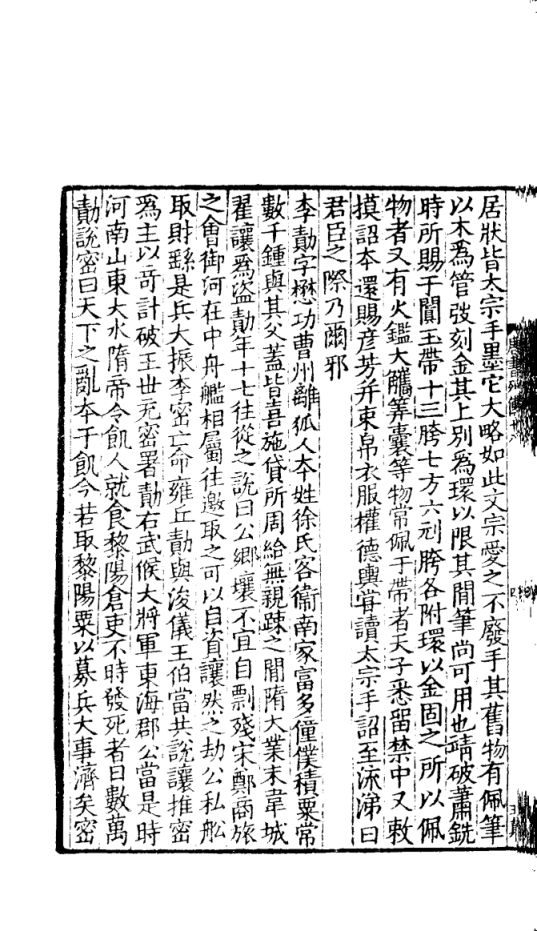 居狀皆太宗手墨它大略如此文宗愛之不廢手其舊物有佩筆
以木爲管弢刻金其上別爲環以限其間筆尚可用也靖破蕭銑
時所賜于闐玉帶十三胯七方六刓胯各附環以金固之所以佩
物者又有火鑑大觿筭囊等物常佩于帶者天子悉留禁中又敕
摸詔本還賜彥芳并束帛衣服權德輿甞讀太宗手詔至流涕曰
君臣之際乃爾邪
李勣字懋功曹州離狐人本姓徐氏客衞南家富多僮僕積粟常
數千鍾與其父蓋皆喜施貸所周給無親踈之間隋大業末韋城
翟讓爲盜勣年十七往從之說曰公鄉壤不宜自剽殘宋鄭商旅
之會御河在中舟艦相屬往邀取之可以自資讓然之劫公私舩
取財繇是兵大振李密亡命雍丘勣與浚儀王伯當共說讓推密
爲主以奇計破王世充密署勣右武候大將軍東海郡公當是時
河南山東大水隋帝令飢人就食黎陽倉吏不時發死者日數萬
勣說密曰天下之亂本于飢今若取黎陽粟以募兵大事濟矣密